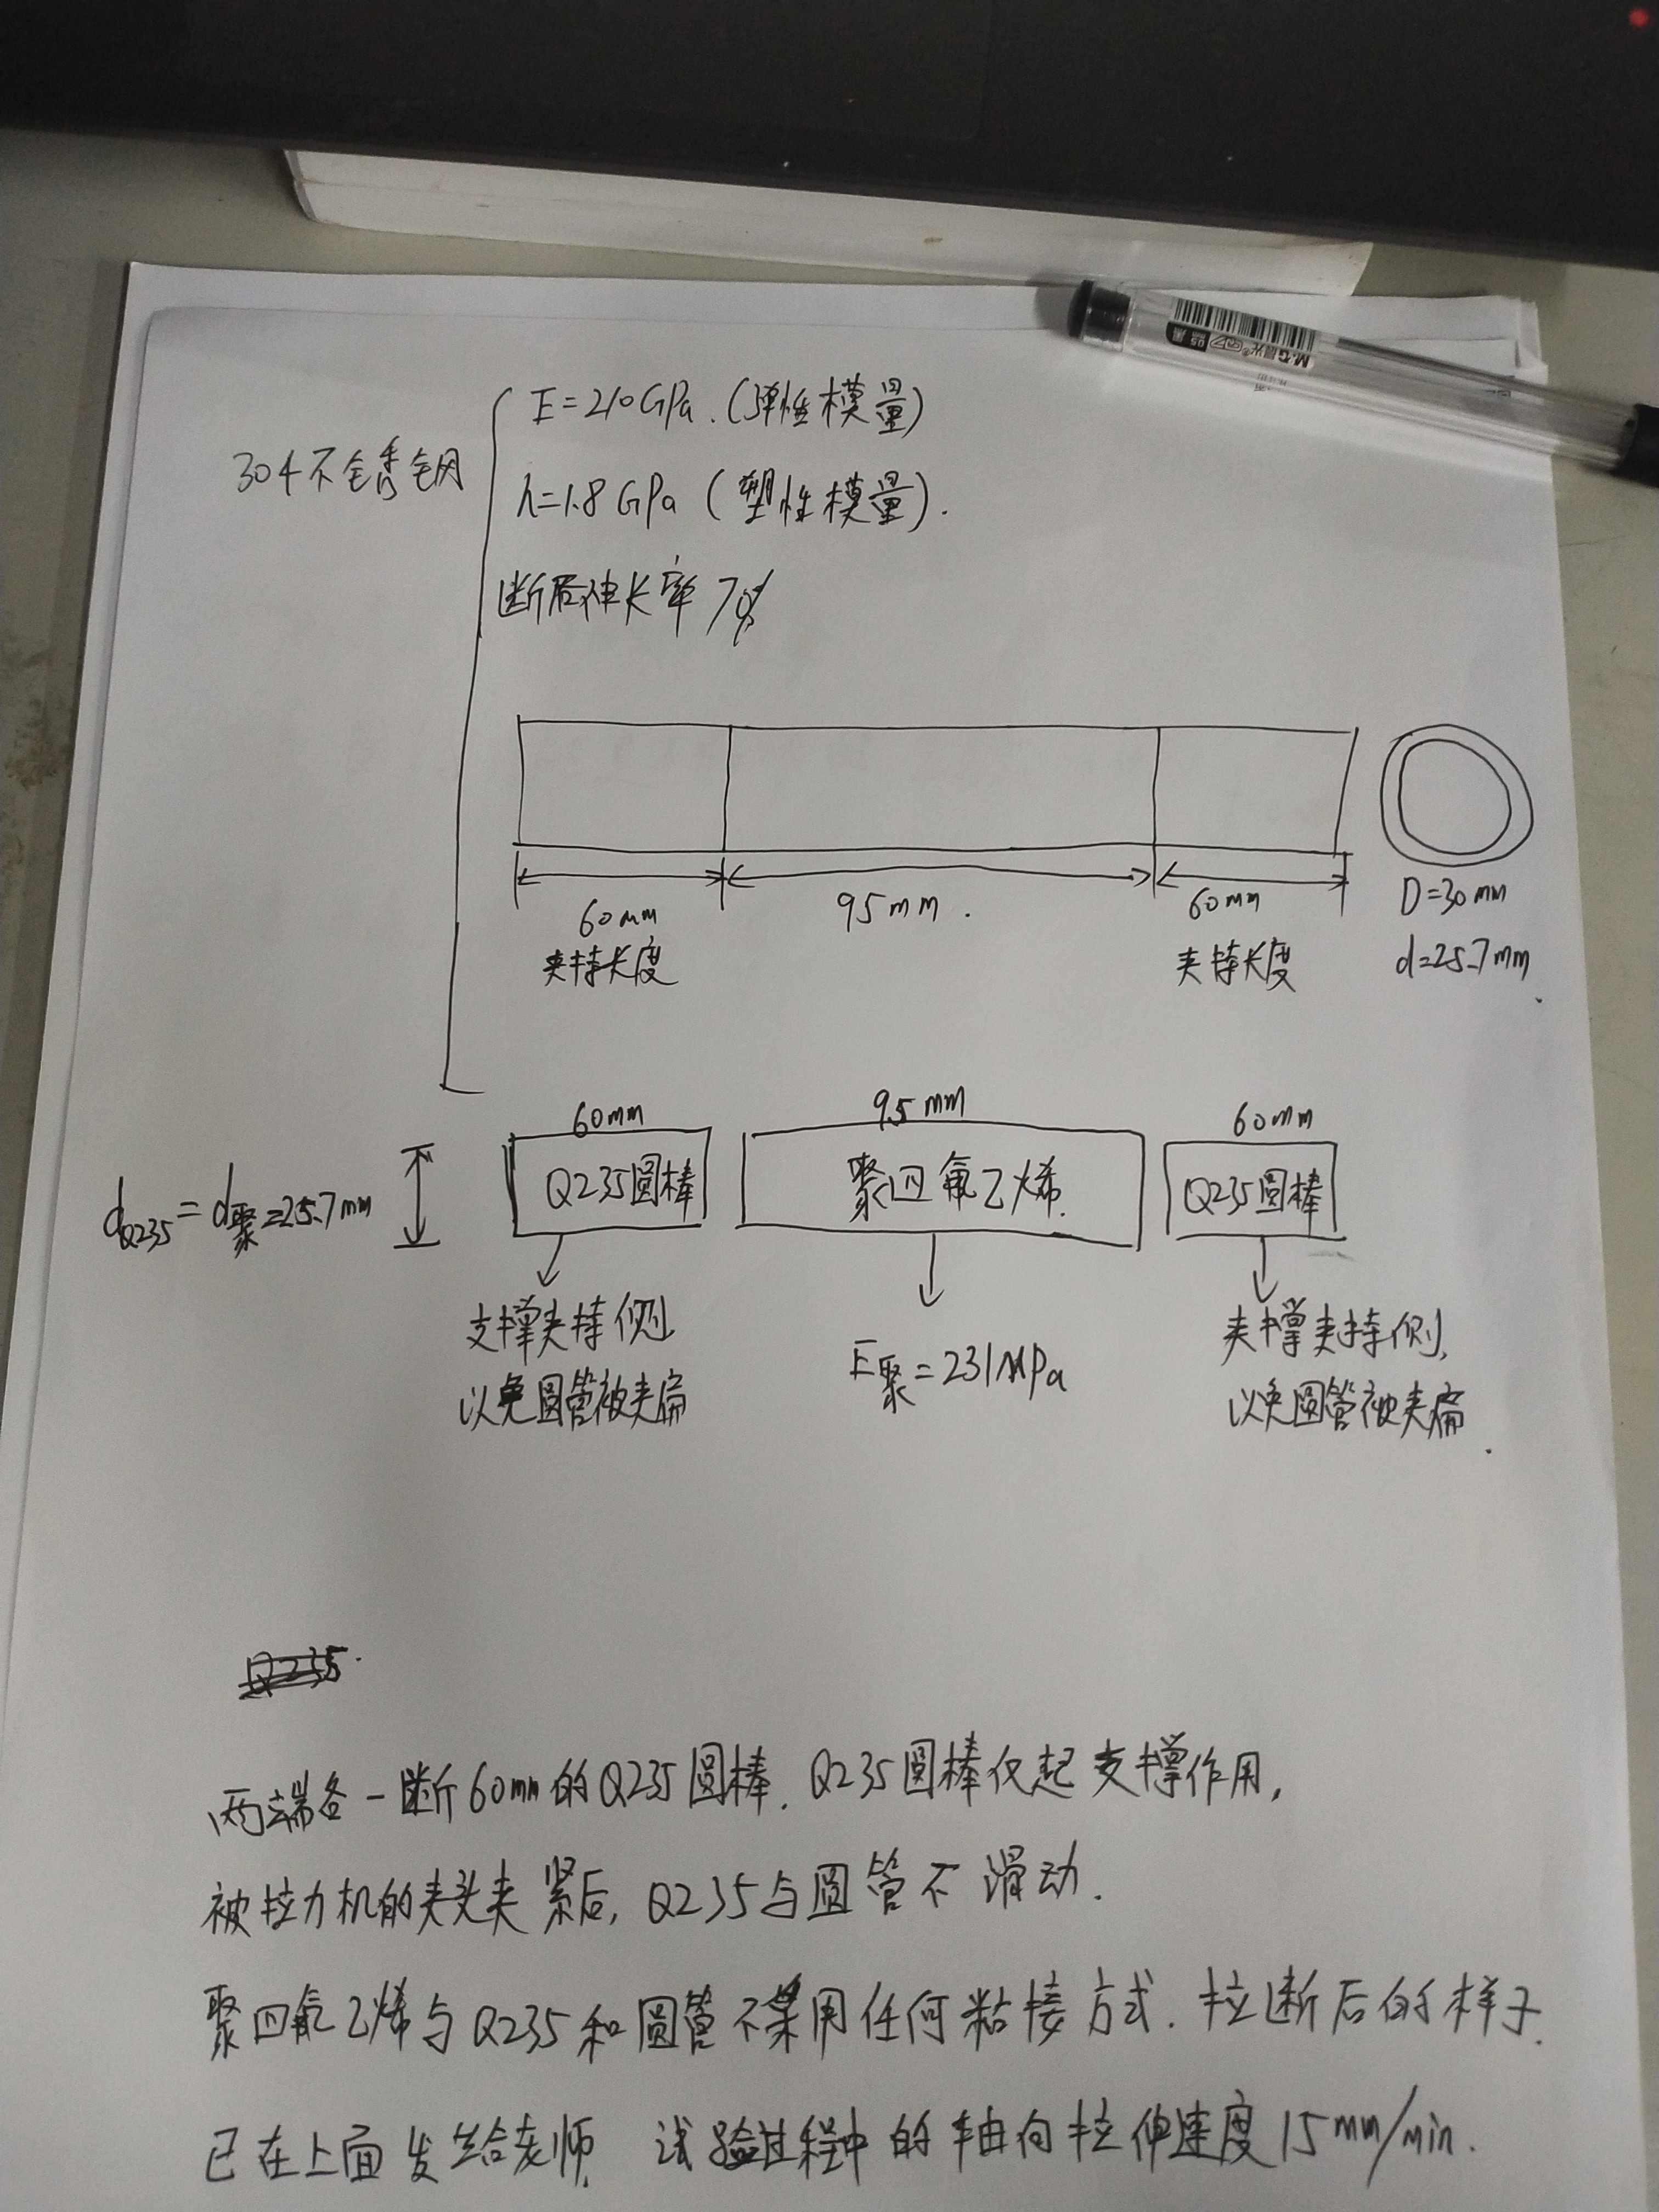 M&G晨光
E=210GPa.(弹性模量)
304不锈钢
h=1.8GPa(塑性模量).
断后伸长率70%
60mm
夹持长度
95mm.
60mm
夹持长度
D=30mm
d=25.7mm
60mm
95mm
60mm
dQ235=d聚=25.7mm
Q235圆棒
聚四氟乙烯.
Q235圆棒
支撑夹持侧
以免圆管被夹扁
E聚=231MPa
夹撑夹持侧,
以免圆管被夹扁.
Q235.
两端各一断60mm的Q235圆棒.Q235圆棒仅起支撑作用,
被拉力机的夹头夹紧后,Q235与圆管不滑动.
聚四氟乙烯与Q235和圆管不采用任何粘接方式.拉断后的样子
已在上面发给老师.试验过程中的轴向拉伸速度15mm/min.